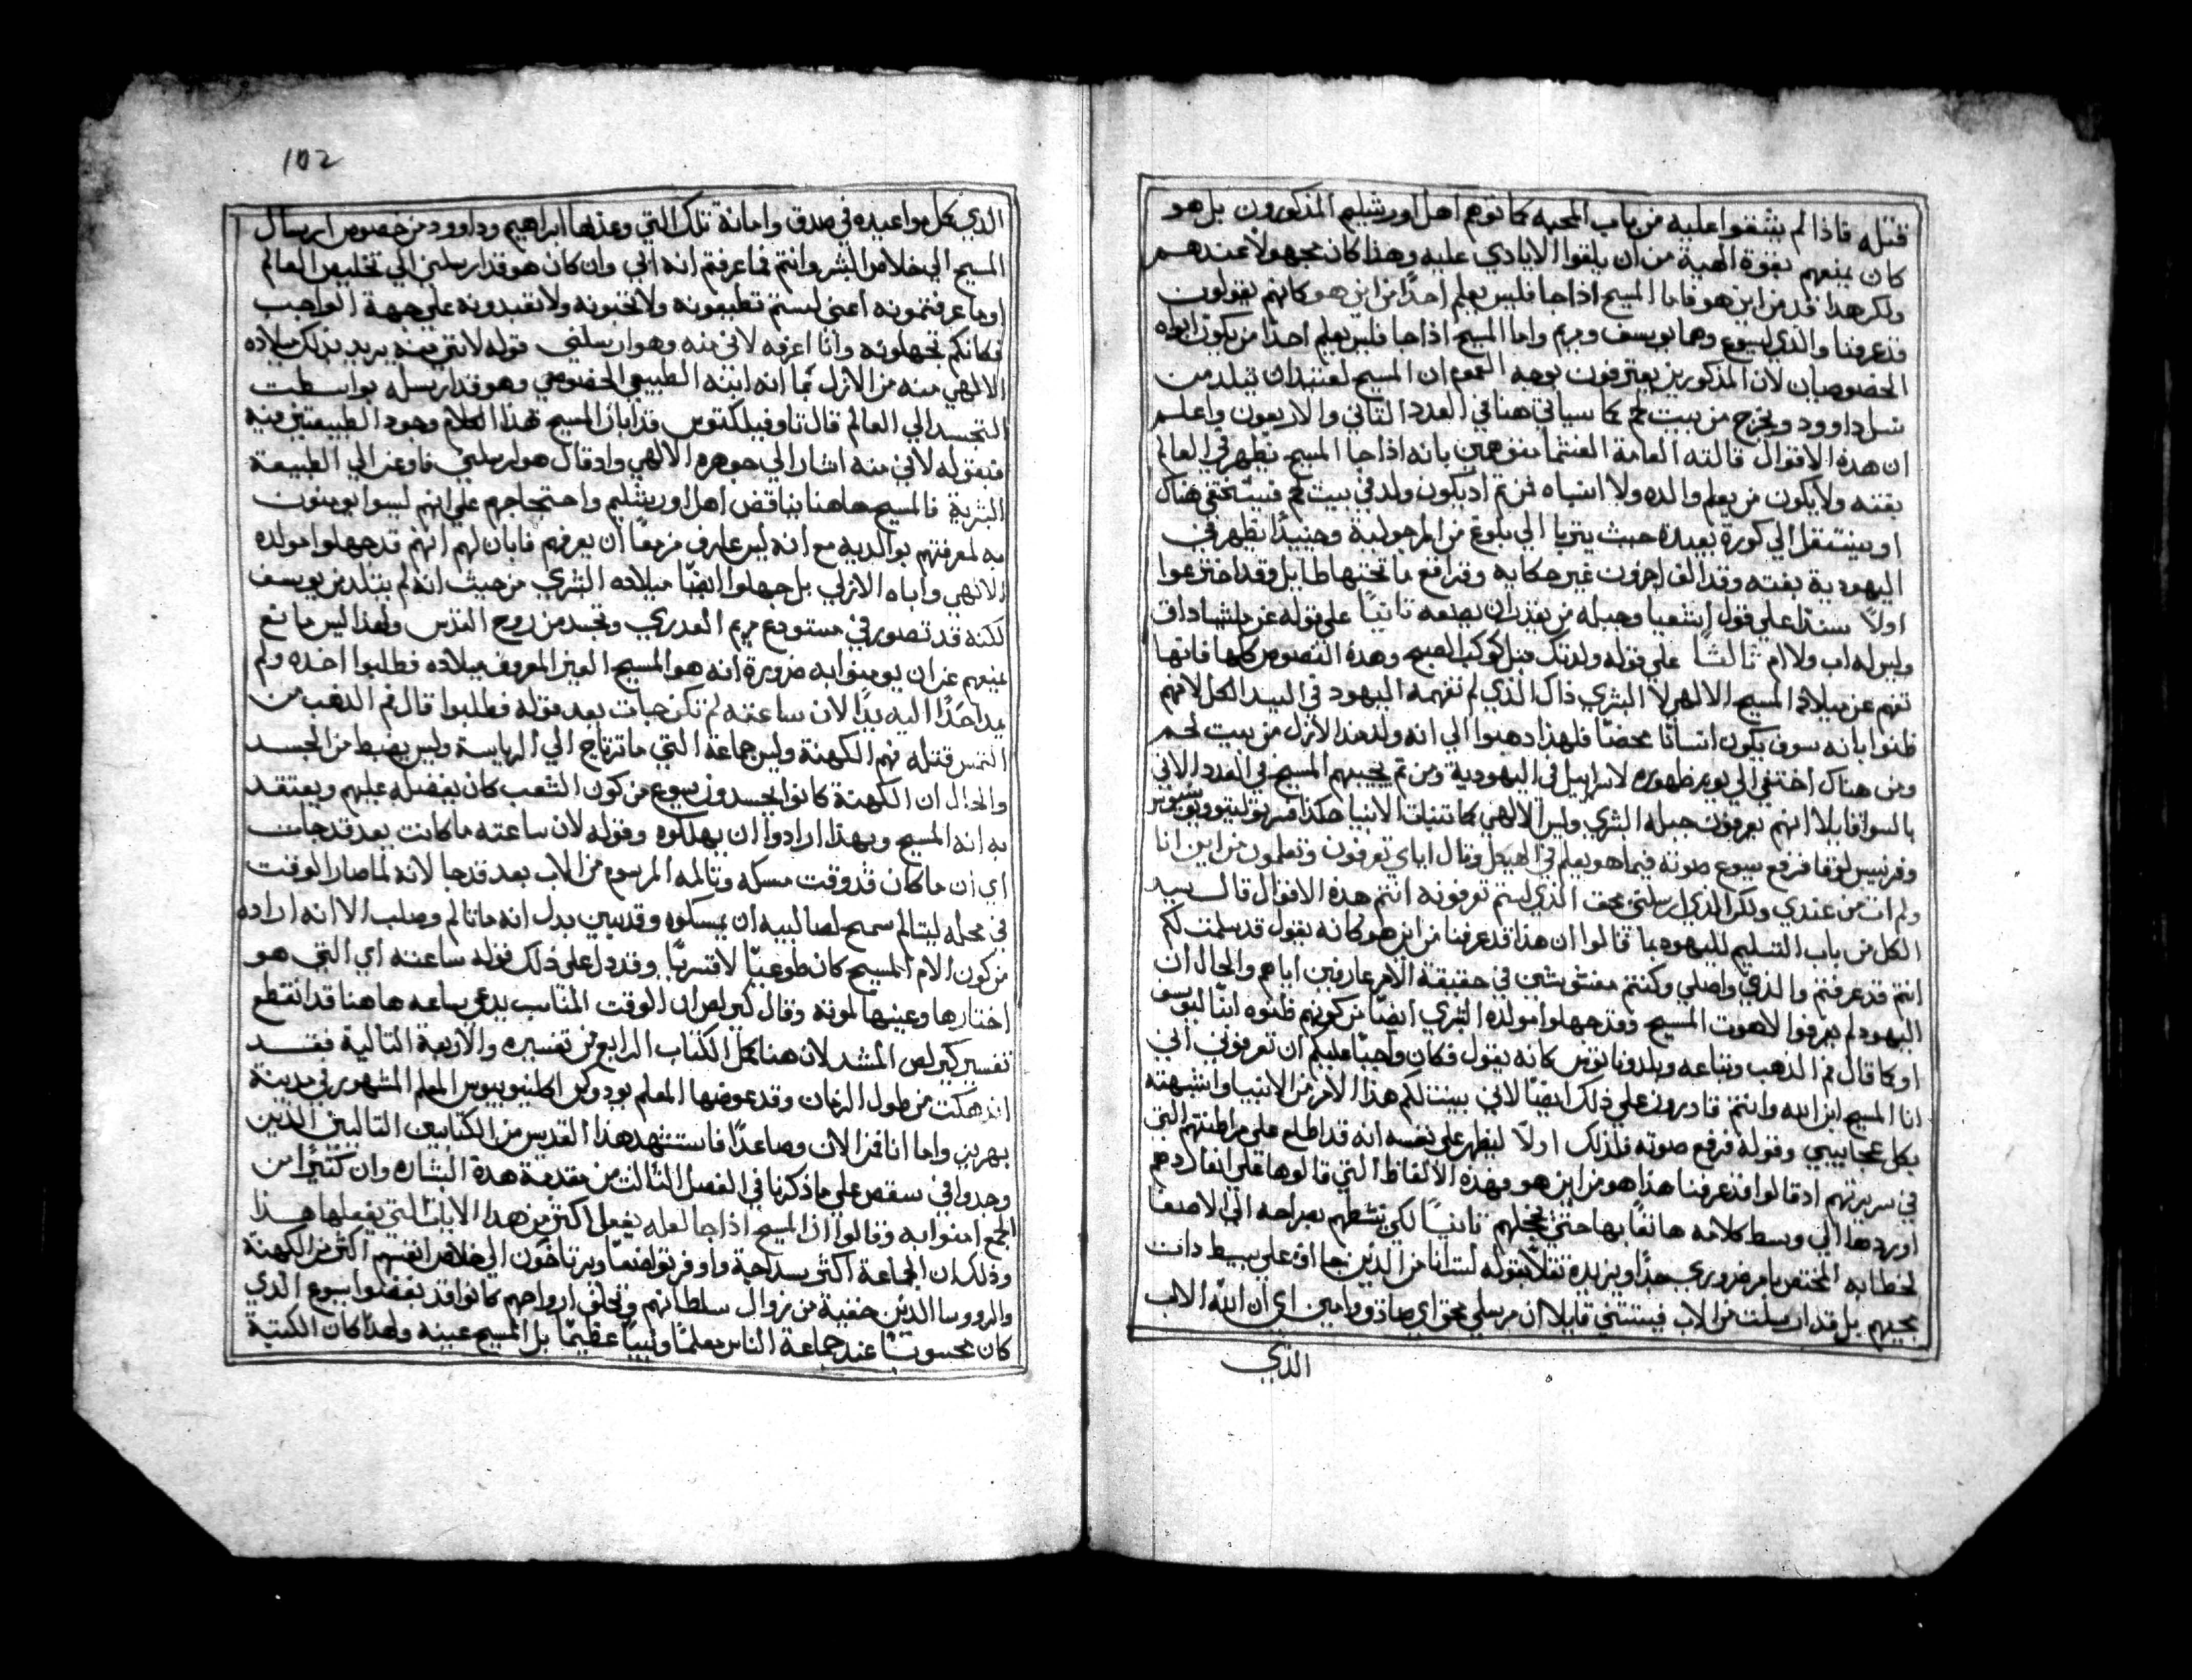 قتله فاذا لم يشفقوا عليه من باب المحبه كما توهم اهل اورشليم المذكورون بل هو
كان يمنعهم بقوة الهية من ان يلقوا الايادي عليه وهذا كان مجهولا عندهم
ولكن هذا قد من اين هو فاما المسيح اذا جا فليس يعلم احدًا من اين هو كانهم يقولون
قد عرفنا والدي يسوع وهما يوسف ومريم واما المسيح اذا جا فليس يعلم احدًا من يكون ابواه
الخصوصيان لان المذكورين يعترفون بوجه العموم ان المسيح لعتيد ان يتلد من
نسل داوود ويخرج من بيت لحم كما سياتي هنا في العدد الثاني والاربعون واعلم
ان هذه الاقوال قالته العامة الغشما متوهمين بانه اذا جا المسيح يظهر في العالم
بغته ولا يكون من يعلم والده ولا انتباه لمن ثم اذ يكون ولد في بيت لحم فيبث يختفي هناك
او ينتقل الي كورة بعيدة حيث يتربا الي بلوغ من الرجولية وحينيدًا يظهر في
اليهودية بغته وقد الف اخرون غير حكايه وقرافع ما تحتها طايل وقد اخترعوا
اولاً سندًا علي قول اشعيا وجيله من يقدر ان يصفه ثانيًا علي قوله عن ملشيساداق
وليس له اب ولا ام ثالثًا علي قوله ولدتك قبل كوكب الصبح وهذه النصوص كلها فانها
تفهم عن ميلاد المسيح الالهي لا البشري ذاك الذي لم تفهمه اليهود في السيد الكل لانهم
ظنوا بانه سوف يكون انسانًا محضًا فلهذا دهبوا الي انه ولد منذ الازل من بيت لحم
ومن هناك اختفي الي يوم ظهوره لاسراييل في اليهودية ومن ثم يجيبهم المسيح في العدد الاتي
بالسوا قايلا انهم يعرفون جبله البشري وليس الالهي كما تنبات الانبيا هكذا
وفرنسيس لوقا فرفع يسوع صوته فيما هو يعلم في الهيكل وقال اياي تعرفون وتعلمون من اين انا
ولم ات من عندي ولكن الذي ارسلني محق الذي لستم تعرفونه انتم هذه الاقوال قال سيد
الكل من باب التسليم لليهود بما قالوا ان هذا قد عرفنا من اين هو كانه يقول قد سلمت لكم
انتم قد عرفتم والدي واصلي وكنتم مفتوشين في حقيقة الامر عارفين اياهم والحال ان
اليهود لم يعرفوا لاهوت المسيح وقد جهلوا مولده البشري ايضًا من كونهم ظنوه ابنًا ليوسف
او كما قال فم الذهب وتباعه وبلدونا توس كانه يقول فكان واجبًا عليكم ان تعرفوني اني
انا المسيح ابن الله وانتم قادرون علي ذلك ايضًا لاني بينت لكم هذا الامر من الانبيا واشبهته
بكل عجايبي وقوله فرفع صوته فلذلك اولاً ليظهر علي نفسه انه قد اطلع علي مراطنتهم التي
في سريرتهم اذ قالوا قد عرفنا هذا هو من اين هو فهذه الالفاظ التي قالوها علي انفرادهم
اوردها الي وسط كلامه هاتفًا بها حتي يخجلهم ثانيًا لكي ينشطهم بصراحه الي الاصغا
لخطابه المختص بامر ضروري جدًا ويزيده ثقلاً بقوله لست انا من الذين جااو علي بسيط ذات
مجيهم بل قد ارسلت من الاب فيستتني قايلا ان مرسلي محق اي صادق وامين اي ان الله الاب
الذي
102
الذي كل مواعيده في صدق وامانة تلك التي وعد بها ابراهيم وداوود من خصوص ارسال
المسيح الي خلاص البشر وانتم فما عرفتم انه ابي وان كان هو قد ارسلني الي تخليص العالم
او ما عرفتمونه اعني لستم تطيعونه ولا تحبونه ولا تعبدونه علي جهة الواجب
فكانكم تجهلونه وانا اعرفه لاني منه وهو ارسلني قوله لانني منه يريد بذلك ميلاده
الالهي منه من الازل بما انه ابنه الطبيعي الخصوصي وهو قد ارسله بواسطت
التجسد الي العالم قال تاوفيلكتوس قد ابان المسيح بهذا الكلام وجود الطبيعتين فيه
فبقوله لاني منه اشار الي جوهره الالهي واذ قال هو ارسلني فاوعز الي الطبيعة
البشرية فالمسيح هاهنا يناقض اهل اورشليم واحتجاجهم علي انهم ليسوا يومنون
به لمعرفتهم بوالديه مع انه ليس عارف مزمعًا ان يعرفهم فابان لهم انهم قد جهلوا مولده
الالهي واباه الازلي بل جهلوا ايضًا ميلاده البشري من حيث انه لم يتلد من يوسف
لكنه قد تصور في مستودع مريم العدري وتجسد من روح القدس ولهذا ليس مانع
يمنعهم عن ان يومنوا به ضرورة انه هو المسيح الغير المعروف ميلاده فطلبوا اخده ولم
يمد احدًا اليه يدًا لان ساعته لم تكن جات بعد قوله فطلبوا قال فم الدهب من
التمس قتله فهم الكهنة وليس جماعة التي ما ترتاح الي الرياسة وليس يضبط من الجسد
والحال ان الكهنة كانوا يحسدون يسوع من كون الشعب كان يفضله عليهم ويعتقد
به انه المسيح وبهذا ارادوا ان يهلكوه وقوله لان ساعته ما كانت بعد قد جات
اي ان ما كان قد وقت مسكه وتالمه المرسوم من الاب بعد قد جا لانه لما صار الوقت
في محله ليتالم سمح لصالبيه ان يمسكوه وقد يبين بدل انه ما تالم وصلب الا انه اراده
من كون الام المسيح كان طوعيًا لا قسريًا وقد دل علي ذلك قوله ساعته اي التي هو
اختارها وعينها لموته وقال كيرلص ان الوقت المناسب يدعي ساعه هاهنا قد انقطع
تفسير كيرلص المشد لان هنا كمل الكتاب الرابع من تفسيره والاربعة التالية فقد
اندهكت من طول الزمان وقد عوضها المعلم بودوكس اكلينوبيوس المعلم المشهور في مدينة
بهريز واما انا فمن الان وصاعدًا فاستشهد هذا القديس من الكتابين التاليين الدين
وجدوا في سقص علي ما ذكرنا في الفصل الثالث من مقدمة هذه البشاره وان كثيرًا من
الجمع امنوا به وقالوا ان المسيح اذا جا لعله يفعل اكثر من هذا الايات التي يفعلها هذا
وذلك ان الجماعة اكثر سداجة واوفر تواضعًا ويرتاحون الي خلاص انفسهم اكثر من الكهنة
والرووسا الذين خفية من زوال سلطانهم وتخلف ارواحهم كانوا قد بغضوا يسوع الذي
كان محسوبًا عند جماعة الناس معلمًا ونبيًا عظيمًا بل المسيح عينه ولهذا كان الكتبة